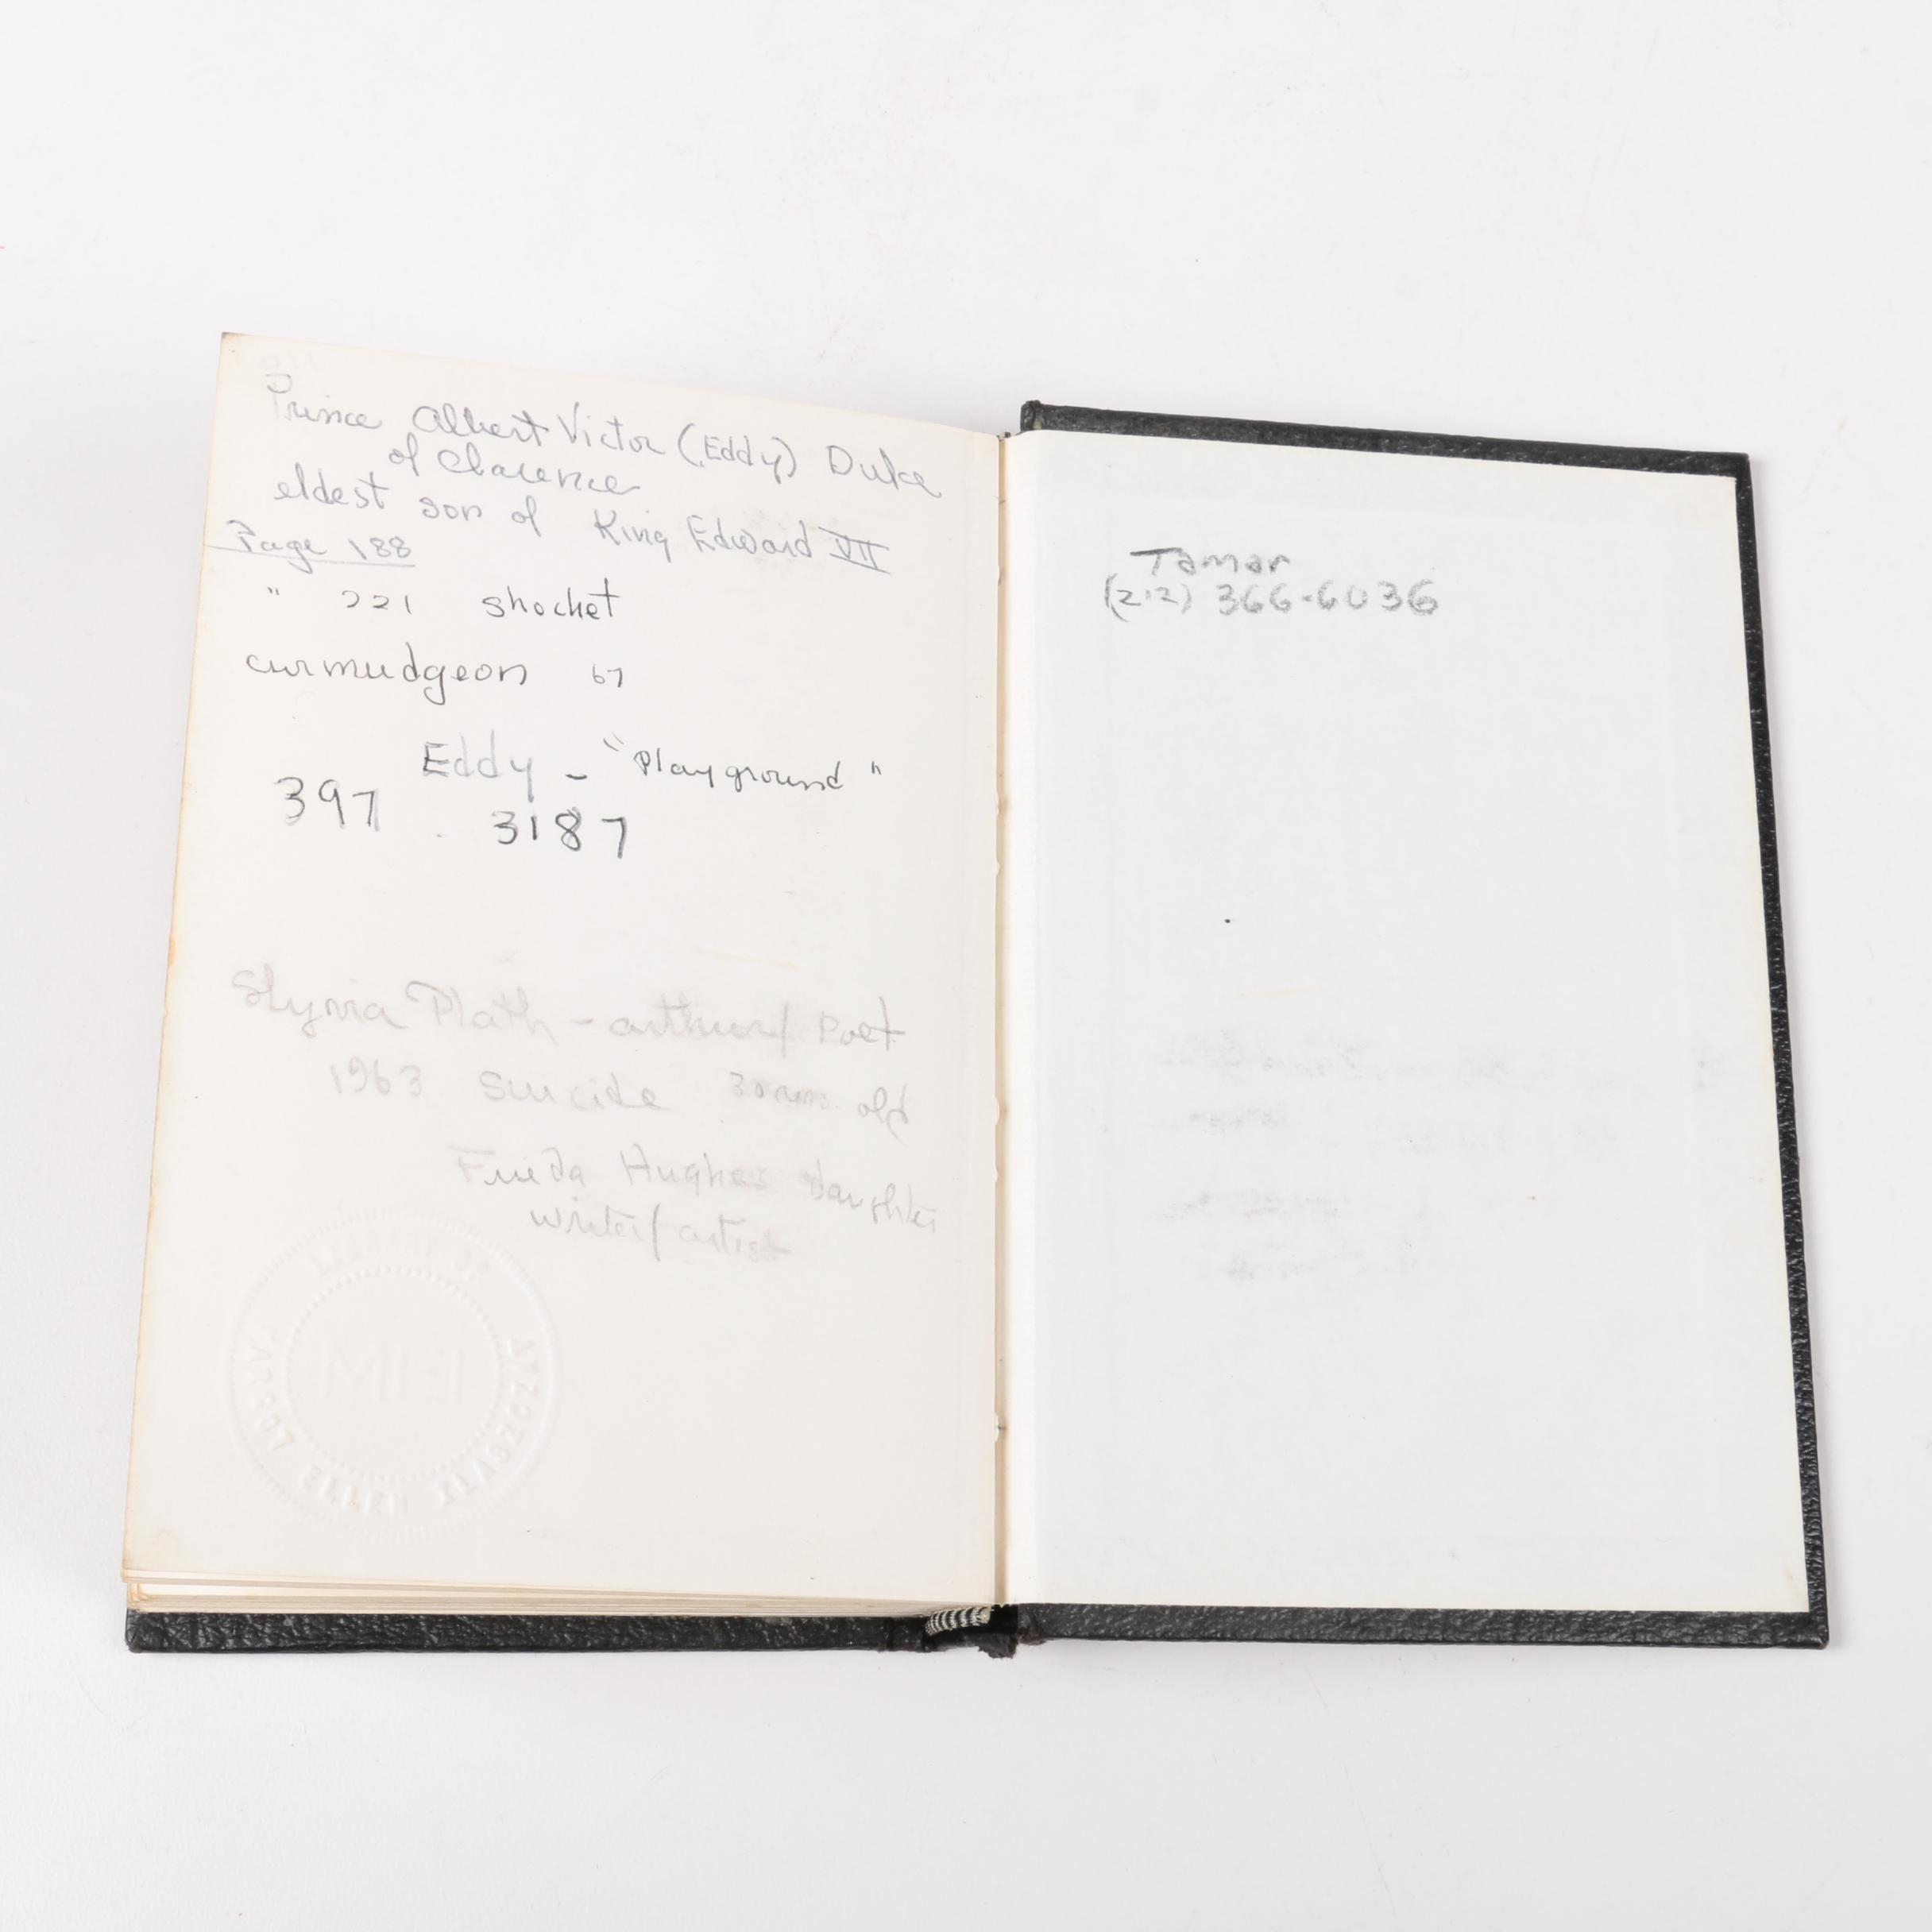 Prince Albert Victor (Eddy) Duke
of Clarence
eldest son of King Edward VII
Page 188
" 221 shochet
curmudgeon 67
Eddy - "Playground"
397 . 3187
Slyvia Plath - author/Poet
1963 Suicide 30 yrs. old
Frieda Hughes daughter
writer/artist
MEI
ELLEN
Tamar
(212) 366-6036